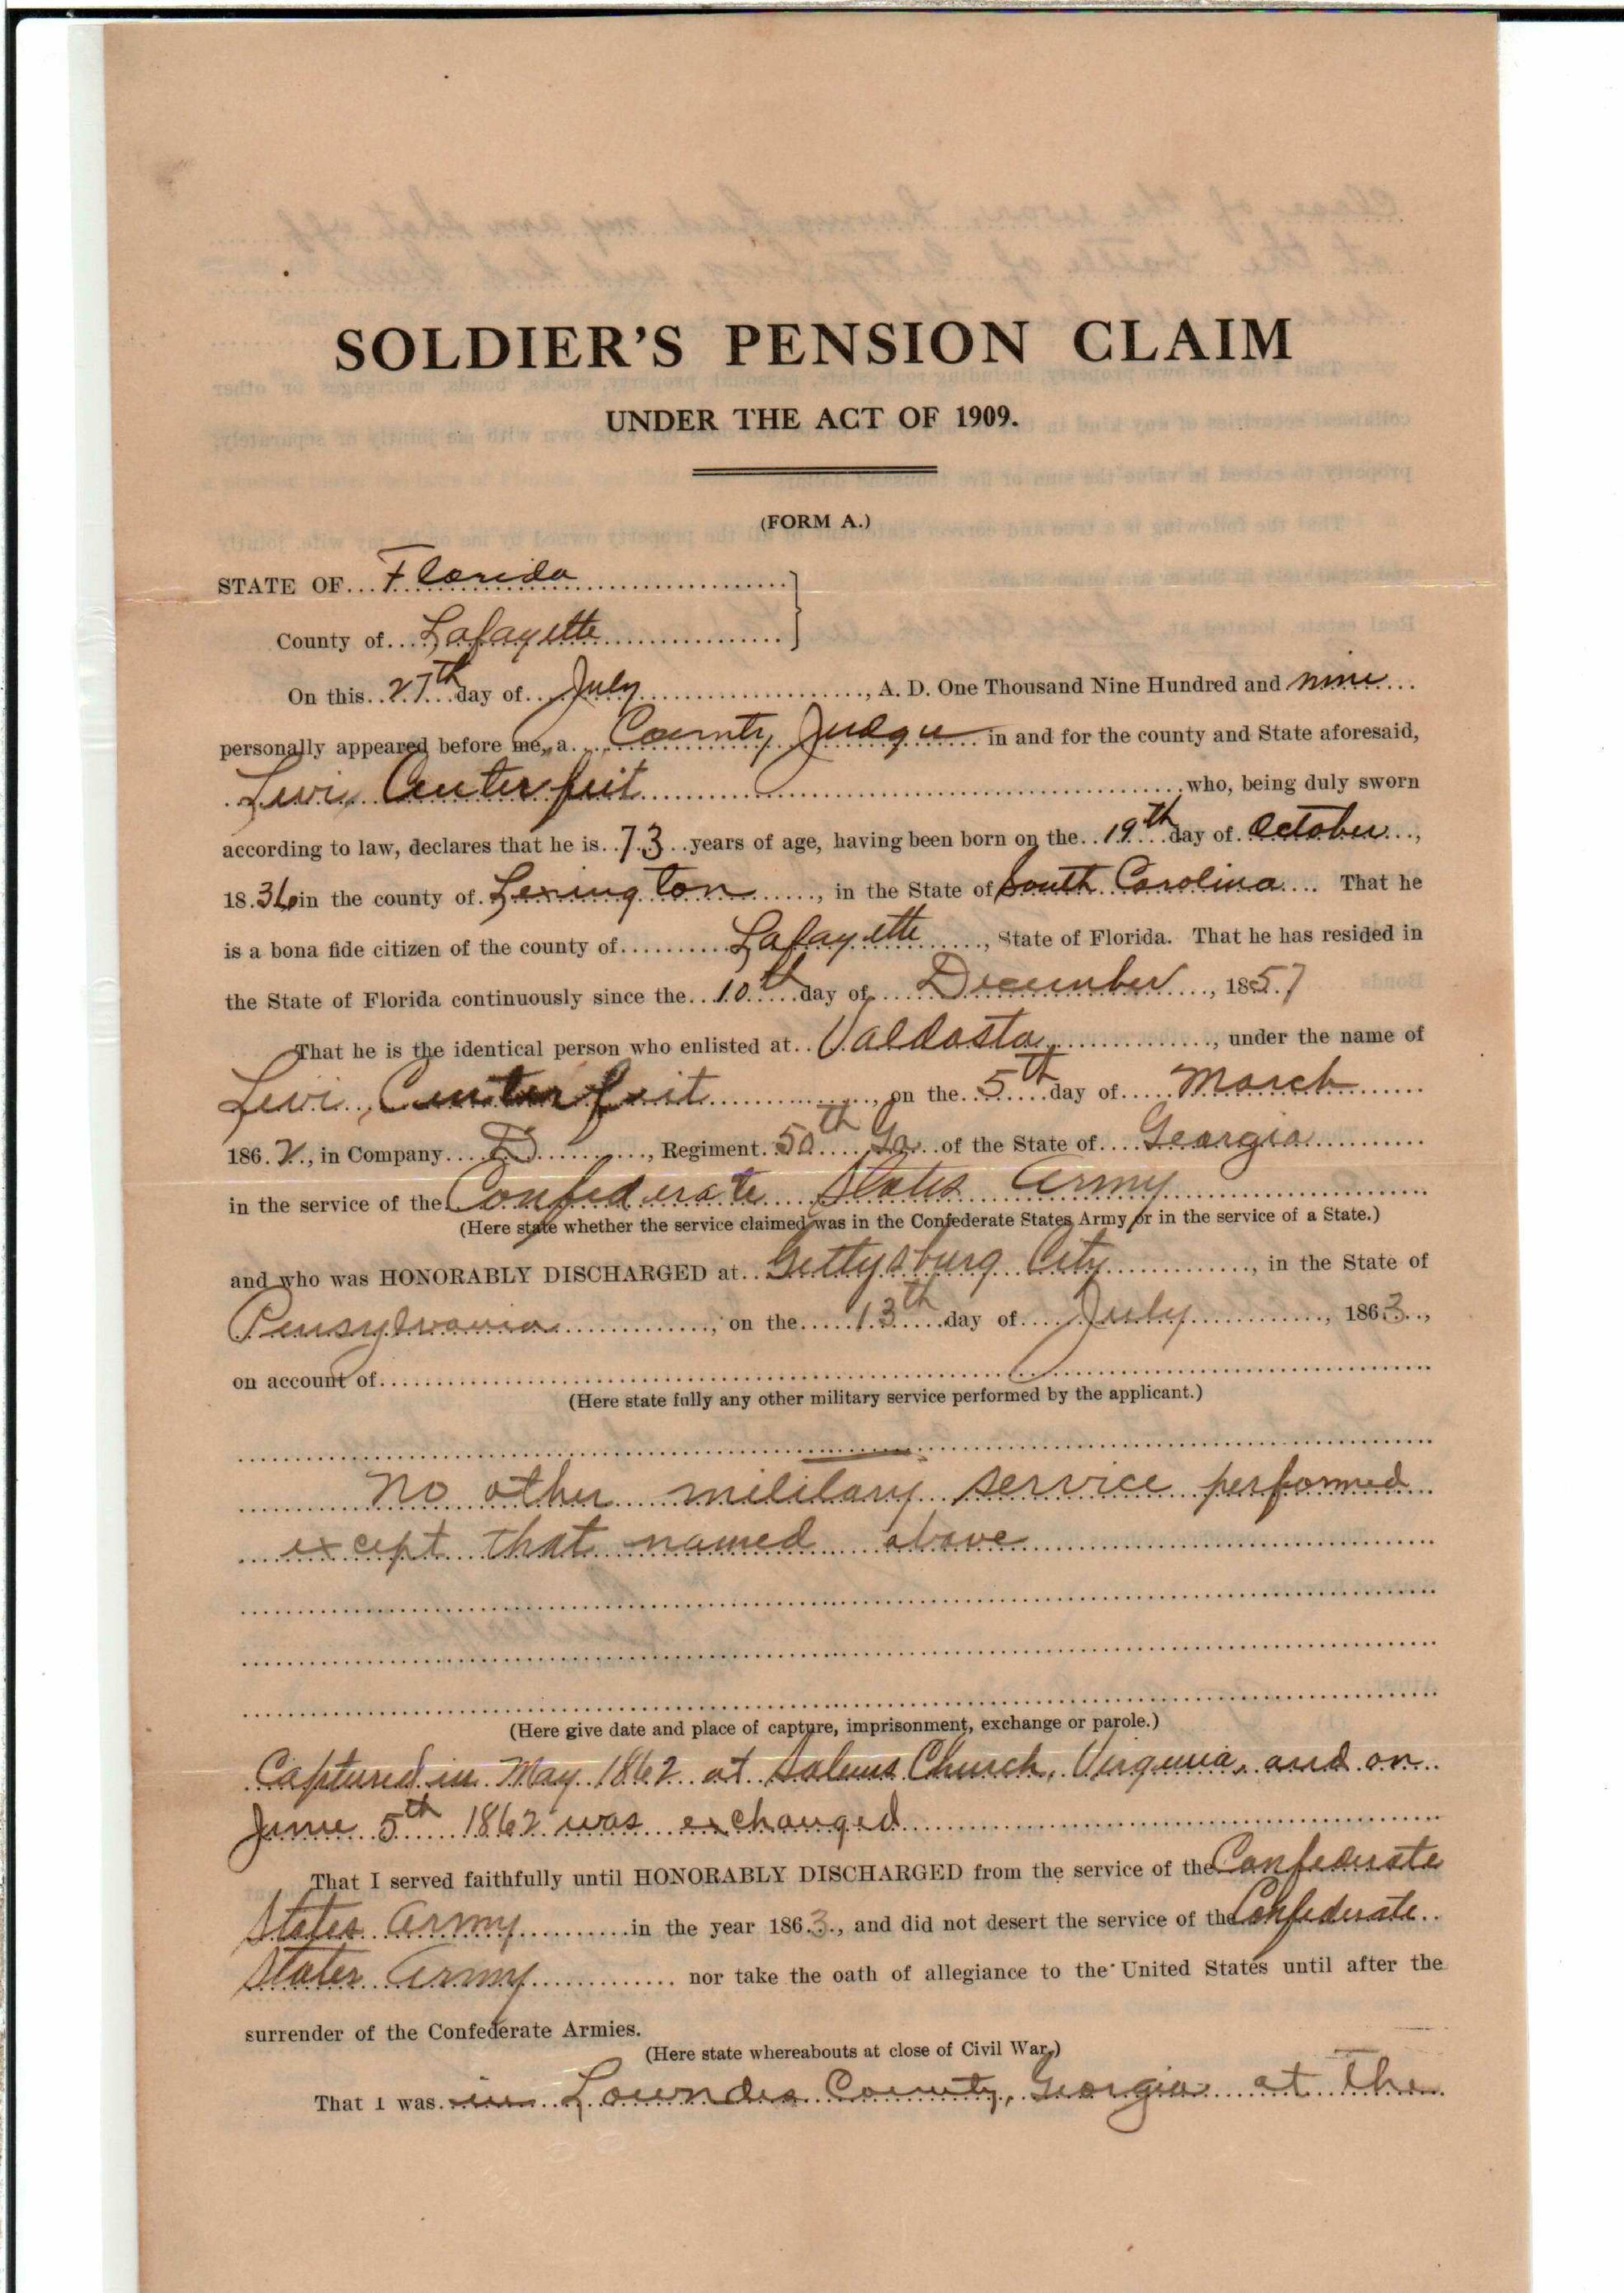 SOLDIER'S PENSION CLAIM
UNDER THE ACT OF 1909.
(FORM A.)
STATE OF Florida
County of Lafayette
On this 27th day of July, A. D. One Thousand Nine Hundred and nine
personally appeared before me, a County Judge in and for the county and State aforesaid,
Levi Centerfeit who, being duly sworn
according to law, declares that he is 73 years of age, having been born on the 19th day of October,
1836 in the county of Lexington, in the State of South Carolina. That he
is a bona fide citizen of the county of Lafayette, State of Florida. That he has resided in
the State of Florida continuously since the 10th day of December, 1857
That he is the identical person who enlisted at Valdosta, under the name of
Levi Centerfeit, on the 5th day of March
1862, in Company D, Regiment 50th Ga. of the State of Georgia
in the service of the Confederate States Army
(Here state whether the service claimed was in the Confederate States Army or in the service of a State.)
and who was HONORABLY DISCHARGED at Gettysburg City, in the State of
Pensylvania, on the 13th day of July, 1863,
on account of
(Here state fully any other military service performed by the applicant.)
No other mililary service performed
except that named above
(Here give date and place of capture, imprisonment, exchange or parole.)
Captured in May 1862 at Salems Church, Virginia, and on
June 5th 1862 was exchanged
That I served faithfully until HONORABLY DISCHARGED from the service of the Confederate
States Army in the year 1863, and did not desert the service of the Confederate
States Army nor take the oath of allegiance to the United States until after the
surrender of the Confederate Armies.
(Here state whereabouts at close of Civil War.)
That I was in Lowndes County, Georgia at the